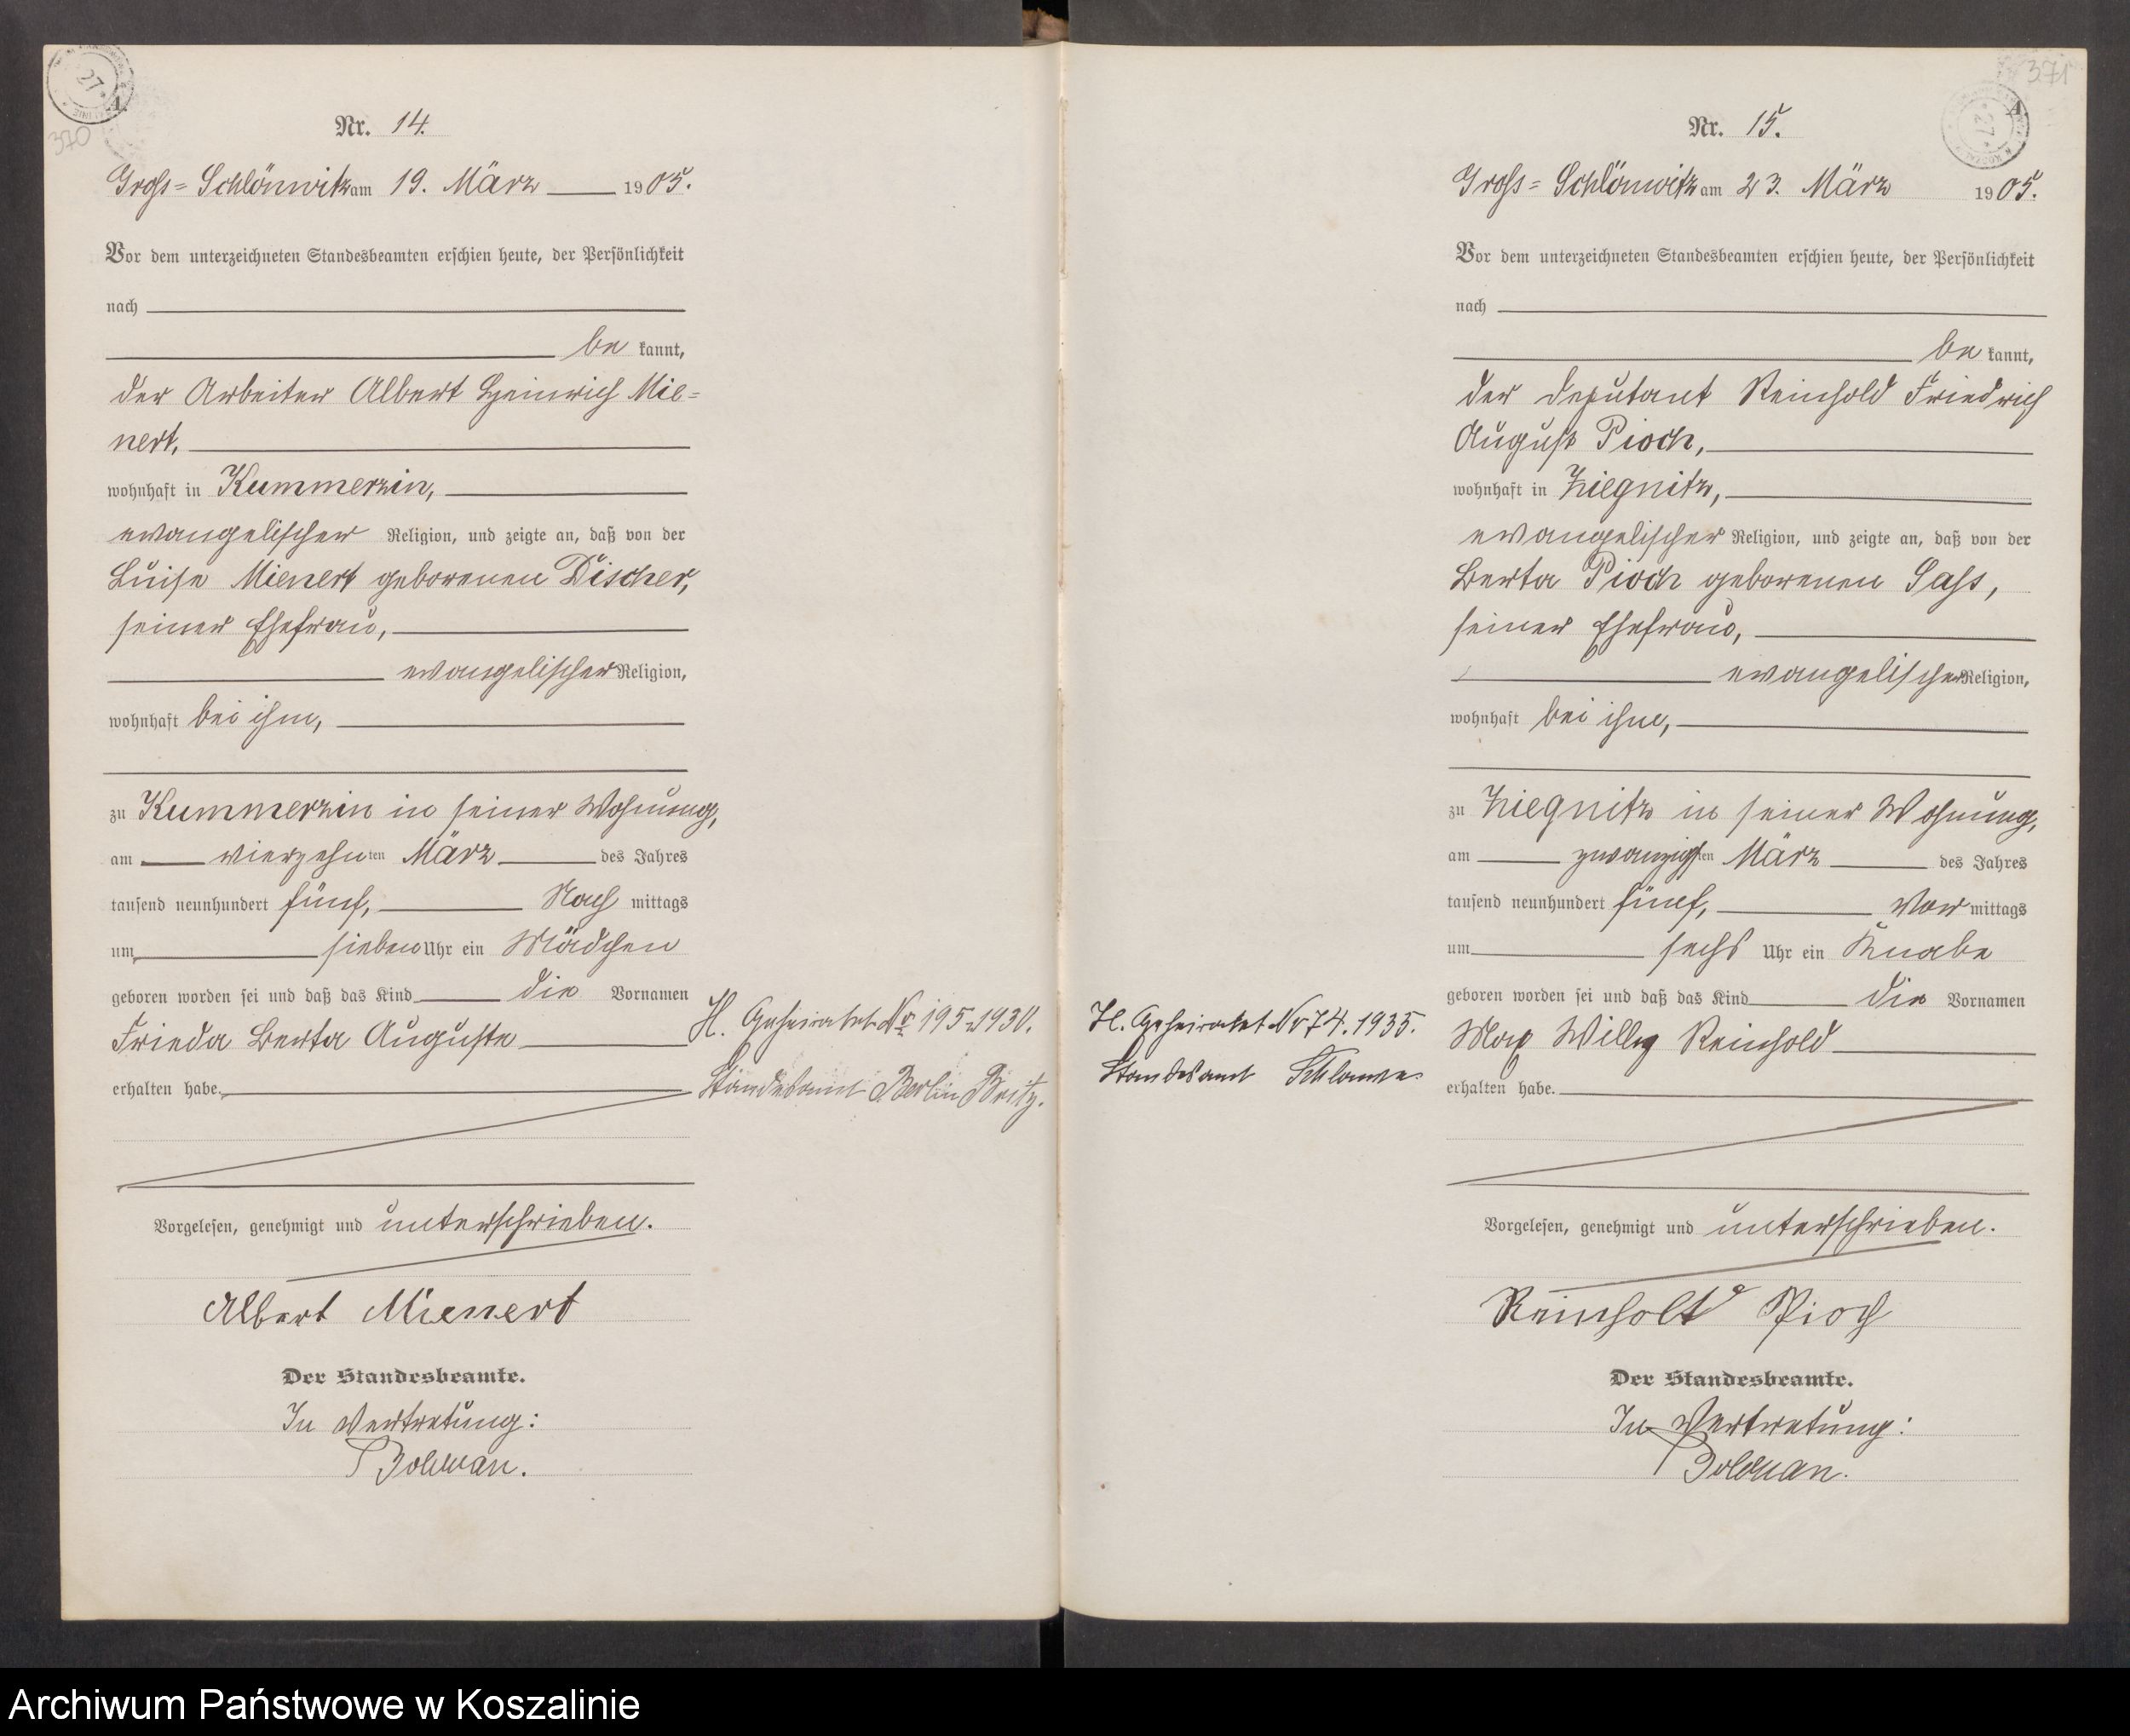 370
Nr. 14.
Gross=Schlönwitz am 19. März 1905.
Vor dem unterzeichneten Standesbeamten erschien heute, der Persönlichkeit
nach
be kannt,
der Arbeiter Albert Heinrich Mie=
nert,
wohnhaft in Kummerzin,
evangelischer Religion, und zeigte an, daß von der
Luise Mienert geborenen Discher,
seiner Ehefrau,
evangelischer Religion,
wohnhaft bei ihm,
zu Kummerzin in seiner Wohnung,
am vierzehnten März des Jahres
tausend neunhundert fünf, Nach mittags
um sieben Uhr ein Mädchen
geboren worden sei und daß das Kind die Vornamen
Frieda Berta Auguste
erhalten habe.
H. Geheiratet Nr 195 1930.
Standesamt Berlin Britz.
Vorgelesen, genehmigt und unterschrieben.
Albert Mienert
Der Standesbeamte.
In Vertretung:
371
Nr. 15.
Gross=Schlönwitz am 23. März 1905.
Vor dem unterzeichneten Standesbeamten erschien heute, der Persönlichkeit
nach
be kannt,
der Deputant Reinhold Friedrich
August Pioch,
wohnhaft in Ziegnitz,
evangelischer Religion, und zeigte an, daß von der
Berta Pioch geborenen Sass,
seiner Ehefrau,
evangelischer Religion,
wohnhaft bei ihm,
zu Ziegnitz in seiner Wohnung,
am zwanzigsten März des Jahres
tausend neunhundert fünf, Vor mittags
um sechs Uhr ein Knabe
geboren worden sei und daß das Kind die Vornamen
Max Willy Reinhold
erhalten habe.
H. Geheiratet Nr 74. 1935.
Standesamt Schlawe.
Vorgelesen, genehmigt und unterschrieben.
Reinholt Pioch
Der Standesbeamte.
In Vertretung:
Archiwum Państwowe w Koszalinie